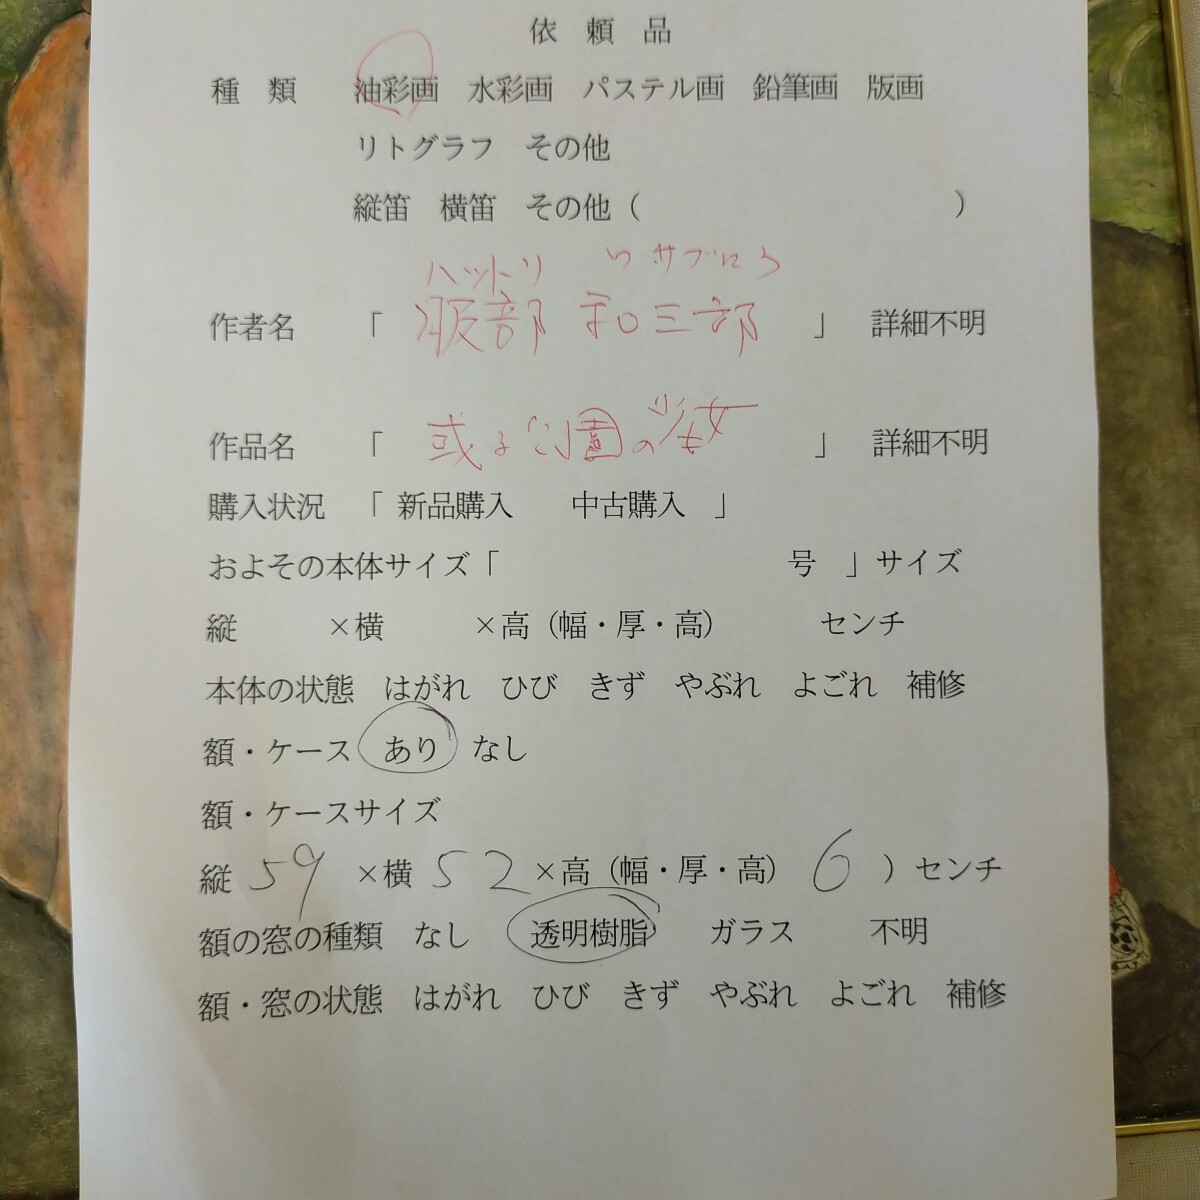 依頼品
種類 油彩画 水彩画 パステル画 鉛筆画 版画
リトグラフ その他
縦笛 横笛 その他（ ）
ハットリ ワサブロウ
作者名 「 服部 和三郎 」 詳細不明
作品名 「 或る公園の少女 」 詳細不明
購入状況 「 新品購入 中古購入 」
およその本体サイズ「 号 」サイズ
縦 ×横 ×高（幅・厚・高） センチ
本体の状態 はがれ ひび きず やぶれ よごれ 補修
額・ケース あり なし
額・ケースサイズ
縦 59 ×横 52 ×高（幅・厚・高） 6 ）センチ
額の窓の種類 なし 透明樹脂 ガラス 不明
額・窓の状態 はがれ ひび きず やぶれ よごれ 補修